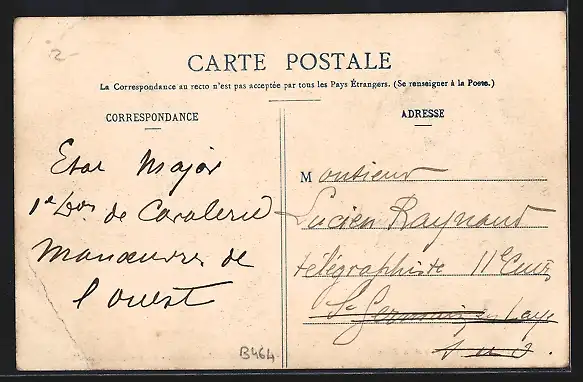 2-
CARTE POSTALE
La Correspondance au recto n'est pas acceptée par tous les Pays Étrangers. (Se renseigner à la Poste.)
CORRESPONDANCE
Etat Major
1e Don de Cavalerie
Manœuvres de
l'ouest
B464
ADRESSE
Monsieur
Lucien Raynaud
télégraphiste 11e Cuir
St Germain en Laye
S et O.